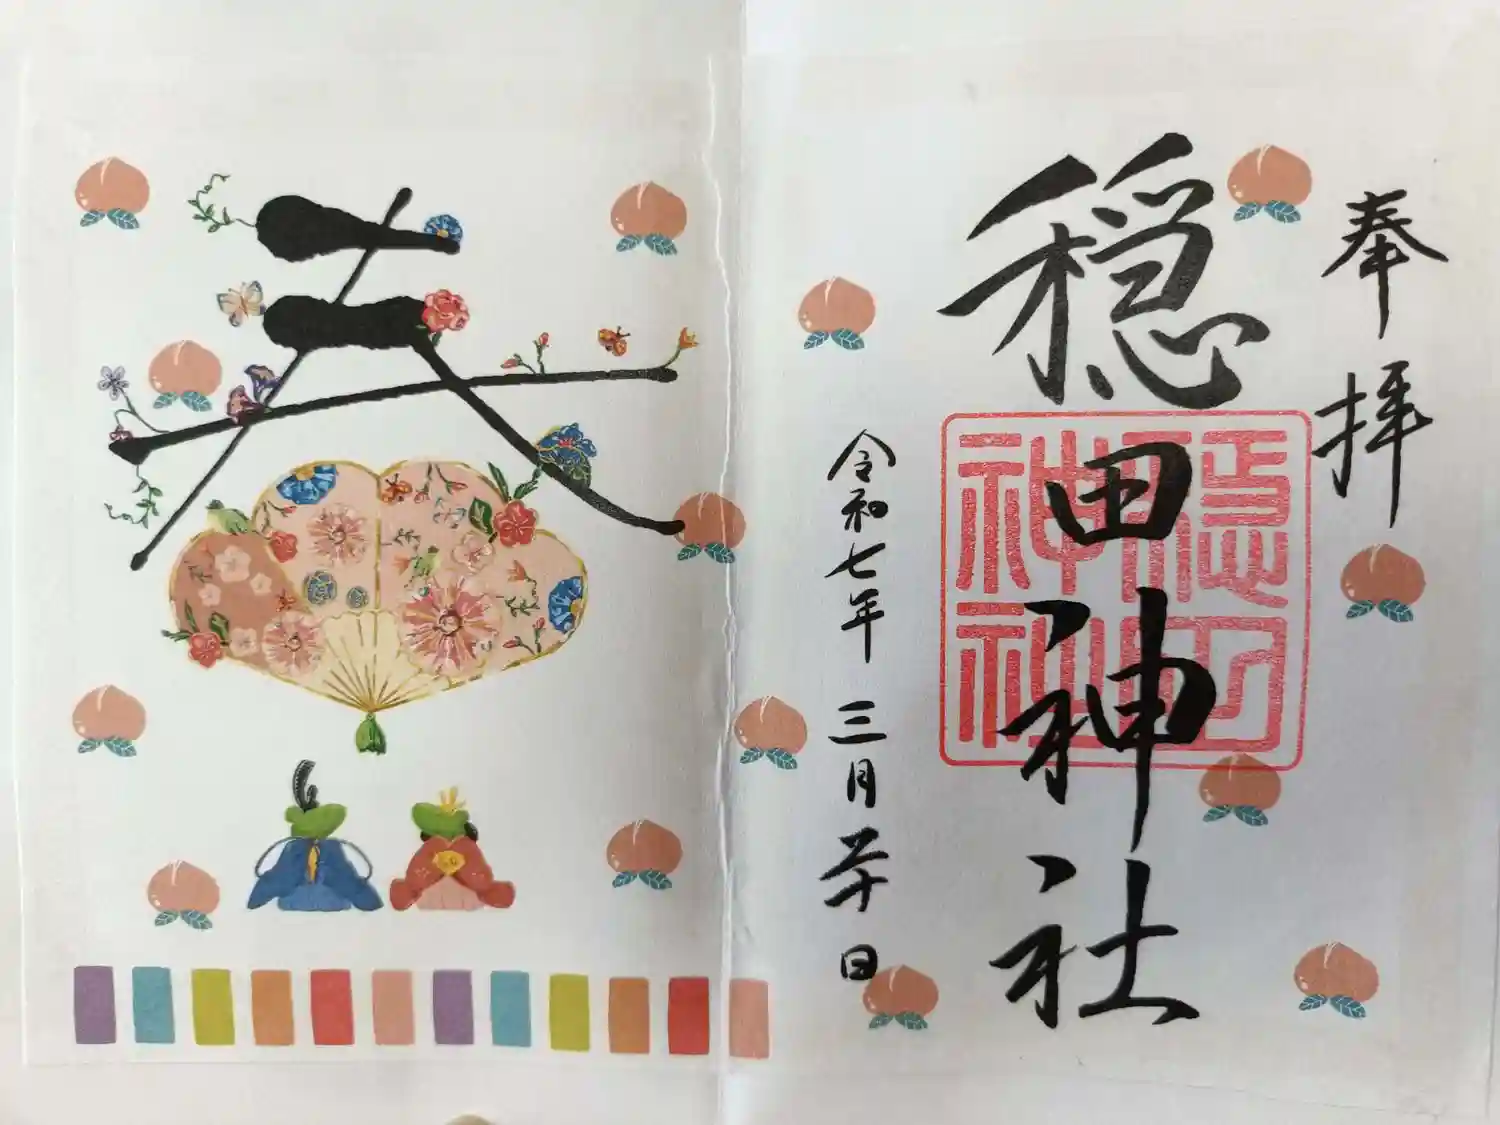 奉拝
穏田神社
穏田
神社
令和七年 三月二十日
春